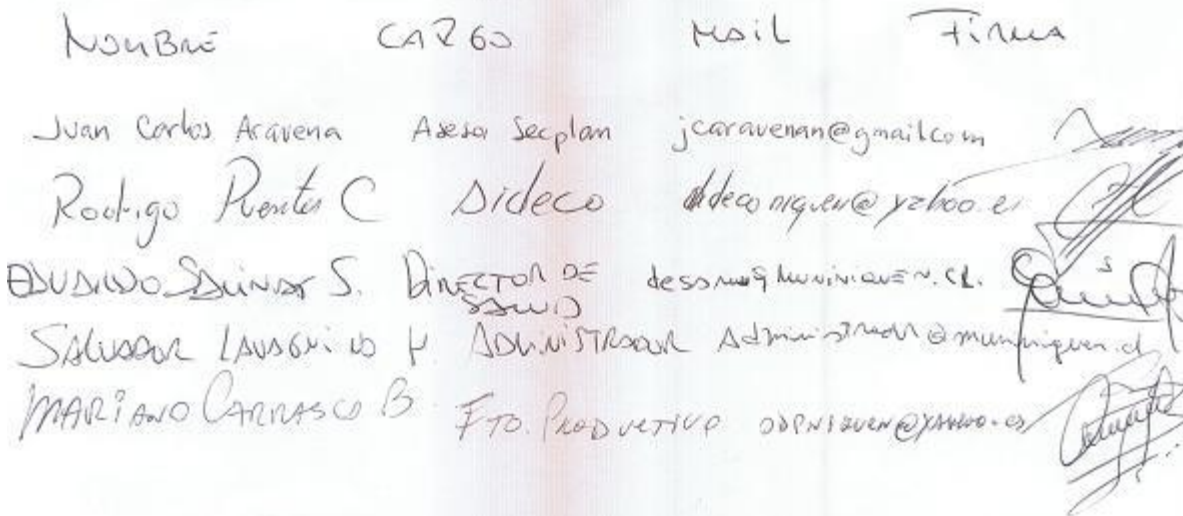 NOMBRE CARGO MAIL FIRMA
Juan Carlos Aravena Asesor Secplan jcaravenan@gmail.com
Rodrigo Puentes C Dideco dideconiquen@yahoo.es
EDUARDO S. DIRECTOR DE SALUD
SALVADOR H. ADMINISTRADOR Administrador@muniniquen.cl
MARIANO CARRASCO B. FTO. PRODUCTIVO odpniquen@yahoo.es